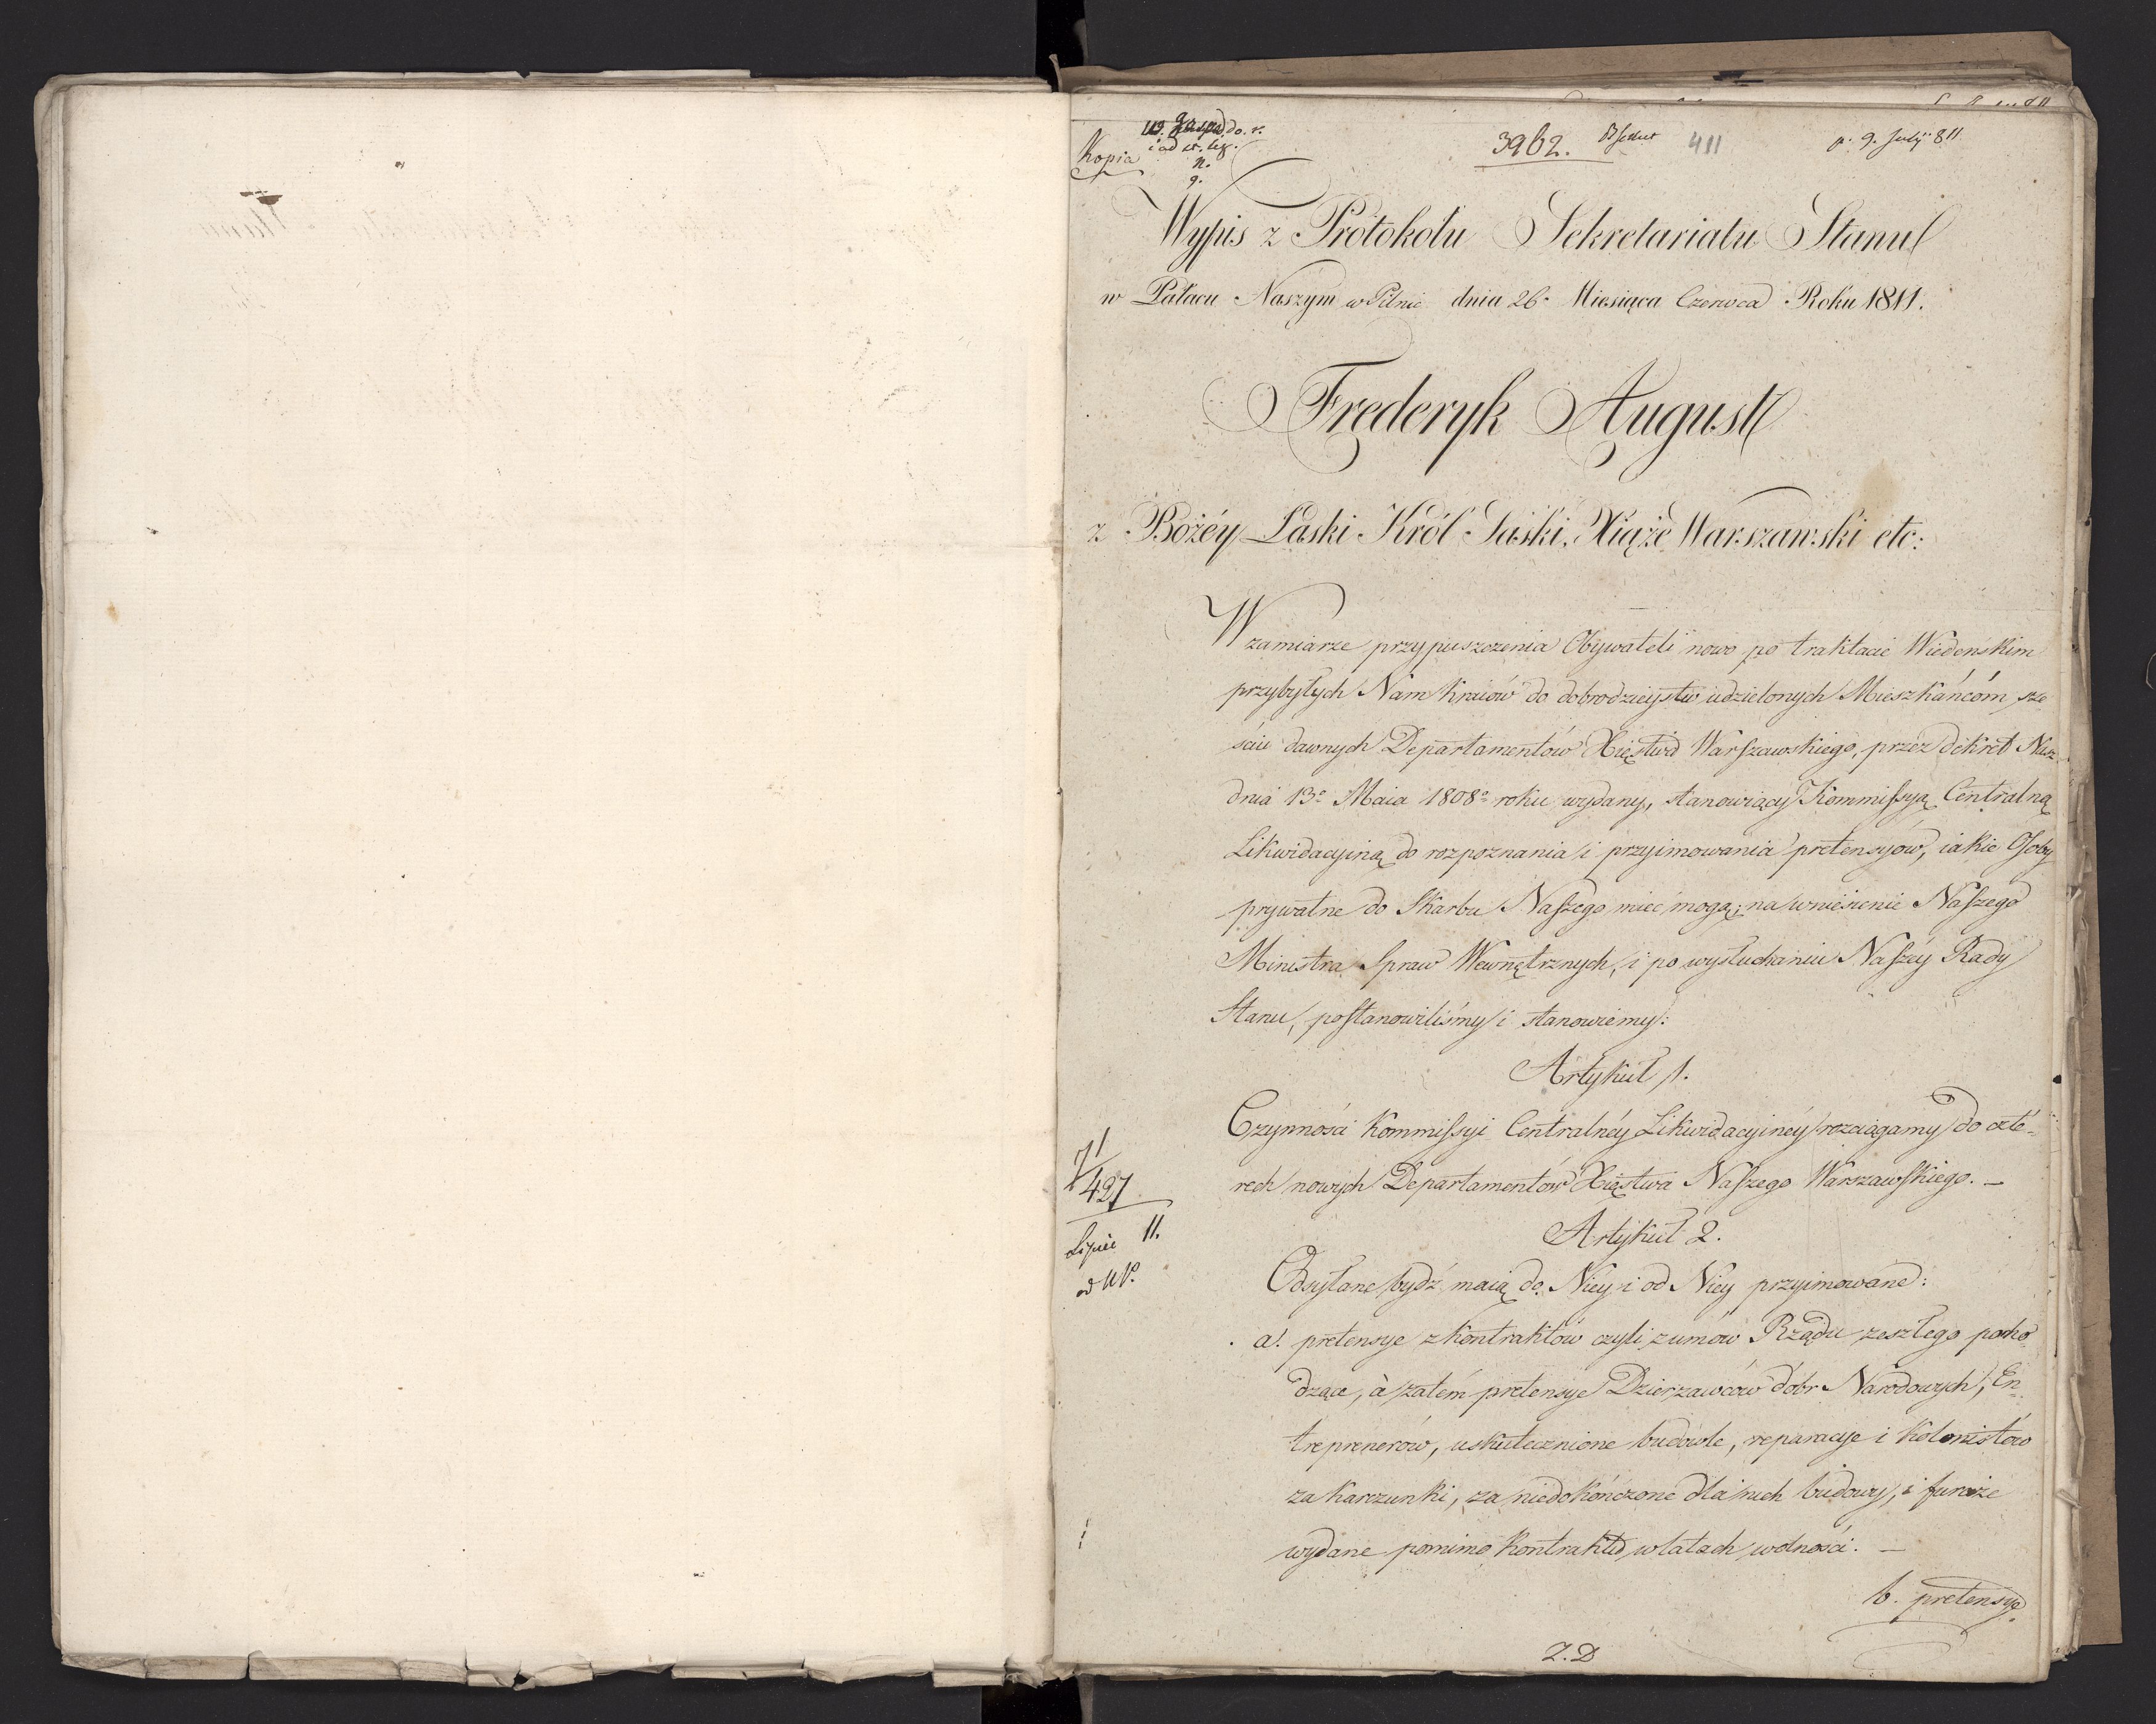 Kopia
3962.
411
p. 9. July 811
Wypis z Protokołu Sekretariatu Stanu
w Pałacu Naszym w Pilnic dnia 26. Miesiąca Czerwca Roku 1811.
Frederyk August
z Bożéy Łaski Król Saski, Xiąże Warszawski etc:
W zamiarze przypuszczenia Obywateli nowo po traktacie Wiedeńskim
przybyłych Nam Kraiów do dobrodzieystw udzielonych Mieszkańcóm sze
ściu dawnych Departamentów Xięstwa Warszawskiego, przez dekret Nasz
dnia 13º Maia 1808º roku wydany, stanowiący Kommissyą Centralną
Likwidacyiną do rozpoznania i przyimowania pretensyów, iakie Osoby
prywatne do Skarbu Naszego mieć mogą; na wniesienie Naszego
Ministra Spraw Wewnętrznych, i po wysłuchaniu Naszéy Rady
Stanu, postanowiliśmy i stanowiemy:
Artykuł 1.
Czynności Kommissyi Centralnéy Likwidacyinéy rozciągamy do czte-
rech nowych Departamentów Xięstwa Naszego Warszawskiego. —
71
427
Lipiec 11.
Artykuł 2.
Odsyłane bydź maią do Niey i od Niey przyimowane:
a. pretensye z Kontraktów czyli z umów Rządu zeszłego pocho-
dzące, à zatém pretensye Dzierzawców dóbr Narodowych, En-
treprenerów, uskutecznione budowle, reparacye i Kolonistów
za karczunki, za niedokończone dla nich budowy, i furaże
wydane pomimo Kontraktu w latach wolności. —
b. pretensye
Z.D